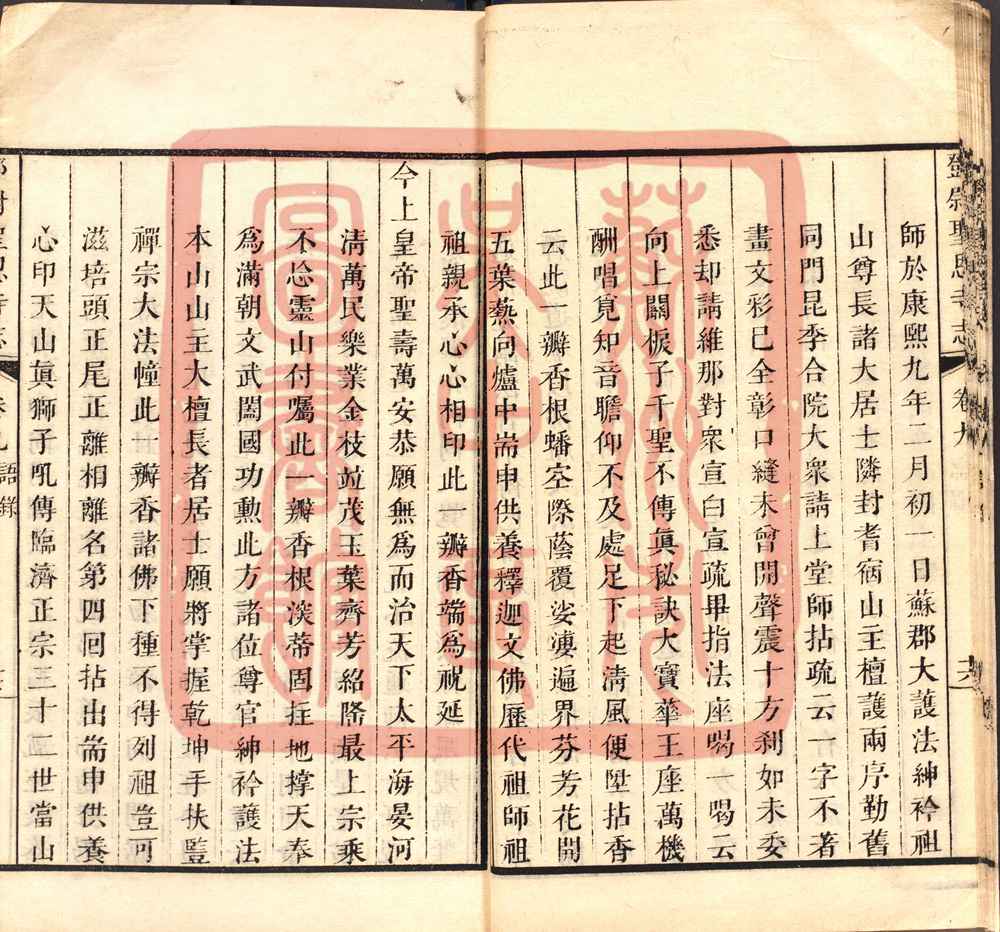 鄧尉聖恩寺志 卷九 六
師於康熙九年二月初一日蘇郡大護法紳衿祖
山尊長諸大居士隣封耆宿山主檀護兩序勤舊
同門昆季合院大衆請上堂師拈疏云一字不著
畫文彩已全彰口縫未曾開聲震十方刹如未委
悉却請維那對衆宣白宣疏畢指法座喝一喝云
向上關棙子千聖不傳眞秘訣大寶華王座萬機
酬唱覓知音瞻仰不及處足下起淸風便陞拈香
云此一瓣香根蟠空際蔭覆娑婆遍界芬芳花開
五葉爇向爐中耑申供養釋迦文佛歷代祖師祖
祖親承心心相印此一瓣香端爲祝延
今上皇帝聖壽萬安恭願無爲而治天下太平海晏河
淸萬民樂業金枝竝茂玉葉齊芳紹隆最上宗乘
不忘靈山付囑此一瓣香根深蒂固拄地撑天奉
爲滿朝文武闔國功勳此方諸位尊官紳衿護法
本山山主大檀長者居士願將掌握乾坤手扶豎
禪宗大法幢此一瓣香諸佛下種不得列祖豈可
滋培頭正尾正離相離名第四回拈出耑申供養
心印天山眞獅子吼傳臨濟正宗三十二世當山
鄧尉聖恩寺志 卷九 語錄